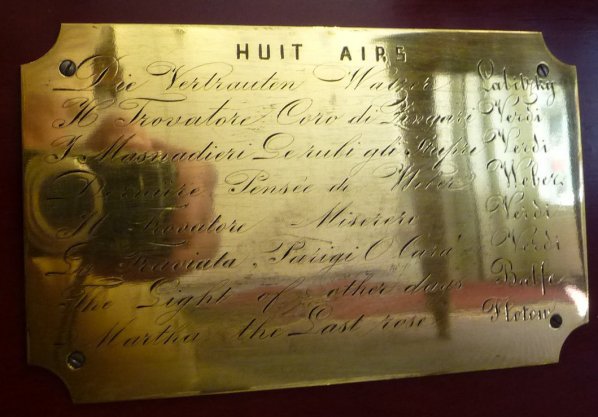 HUIT AIRS
Die Vertrauten Walzer Labitzky
Il Trovatore Coro di Zingari Verdi
I Masnadieri Le rubi gli Verdi
Derniere Pensée de Weber Weber
Il Trovatore Misereri Verdi
La Traviata "Parigi O Cara" Verdi
The Light of other days Balfe
Martha the Last rose Flotow